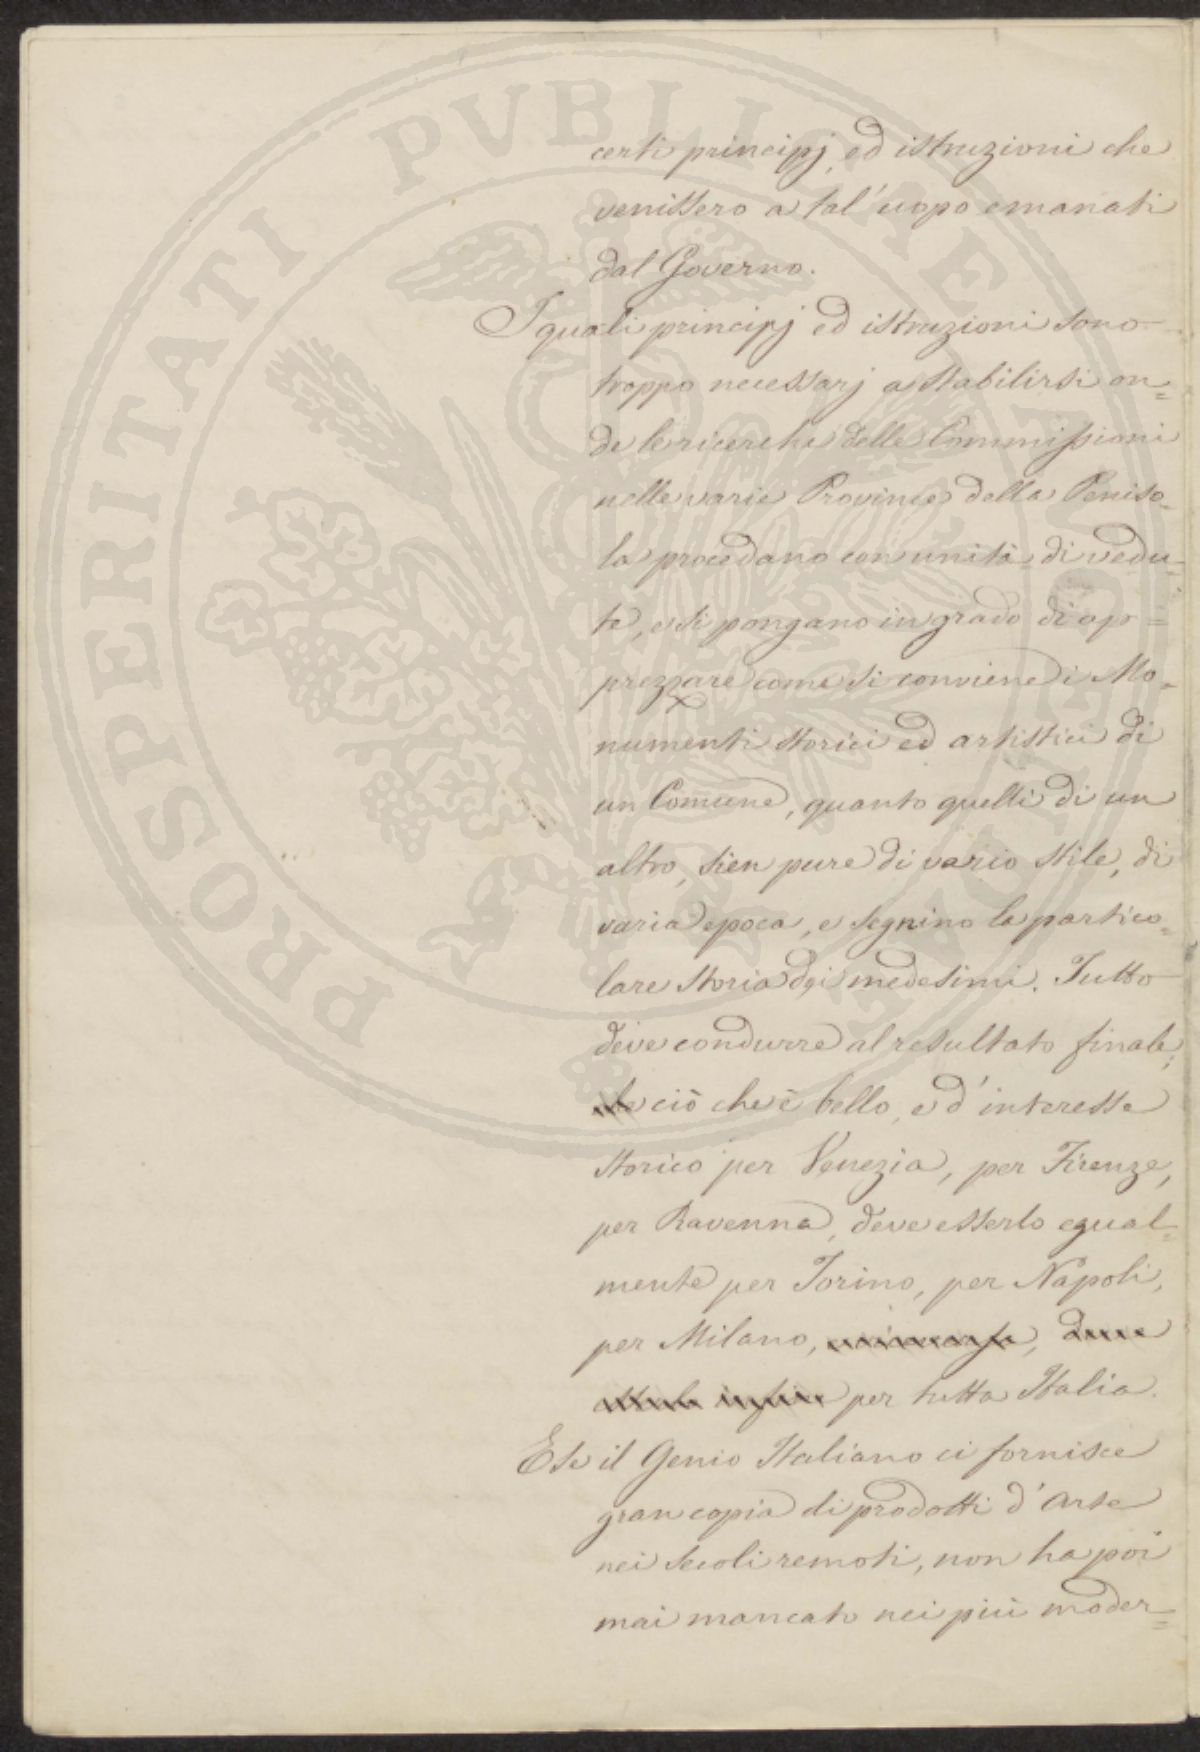 certi principj, ed istruzioni che
venissero a tal' uopo emanati
dal Governo.
I quali principj ed istruzioni sono
troppo necessarj a stabilirsi on=
de le ricerche delle Commissioni
nelle varie Provincie della Peniso=
la procedano con unità di vedu=
te, e si pongano in grado di ap=
prezzare come si conviene i Mo=
numenti storici ed artistici di
un Comune, quanto quelli di un
altro, sien pure di vario stile, di
varia epoca, e segnino la partico=
lare storia dei medesimi. Tutto
deve condurre al resultato finale;
che ciò che è bello, e d' interesse
storico per Venezia, per Firenze,
per Ravenna, deve esserlo egual=
mente per Torino, per Napoli,
per Milano,
per tutta Italia.
E se il Genio Italiano ci fornisce
gran copia di prodotti d' Arte
nei secoli remoti, non ha poi
mai mancato nei più moder=
PROSPERITATI PVBLICAE